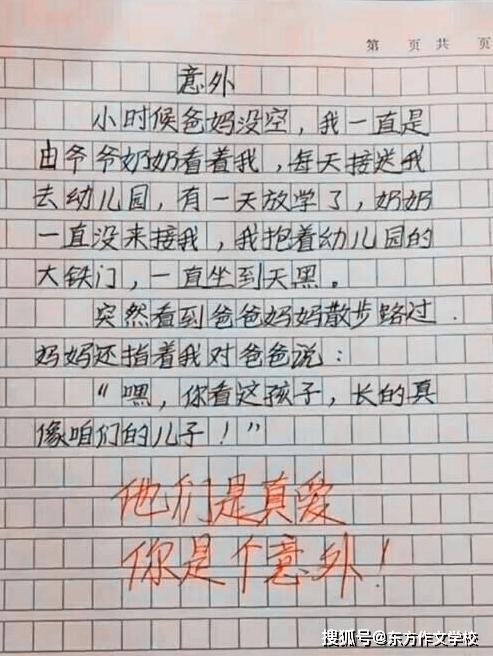 第 页 共 页
意外
小时候爸妈没空，我一直是
由爷爷奶奶看着我，每天接送我
去幼儿园，有一天放学了，奶奶
一直没来接我，我抱着幼儿园的
大铁门，一直坐到天黑。
突然看到爸爸妈妈散步路过.
妈妈还指着我对爸爸说：
“嘿，你看这孩子，长的真
像咱们的儿子！”
他们是真爱
你是个意外！
搜狐号@东方作文学校